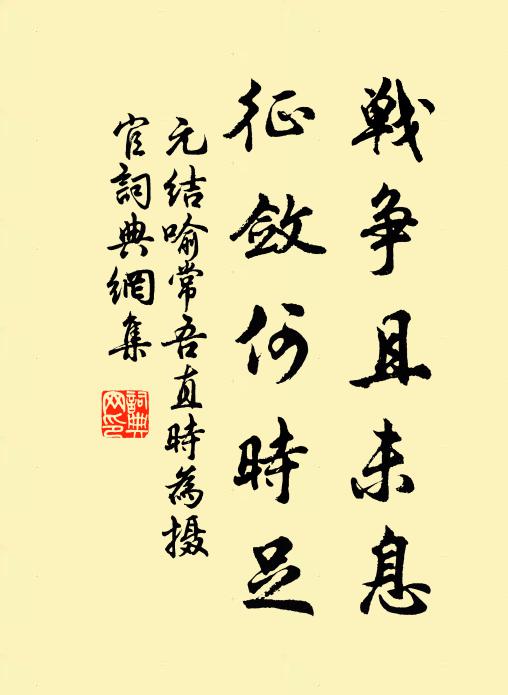 戦争且未息
征斂何時足
元结喻常吾直時為摄
官詞典網集
詞典
网印